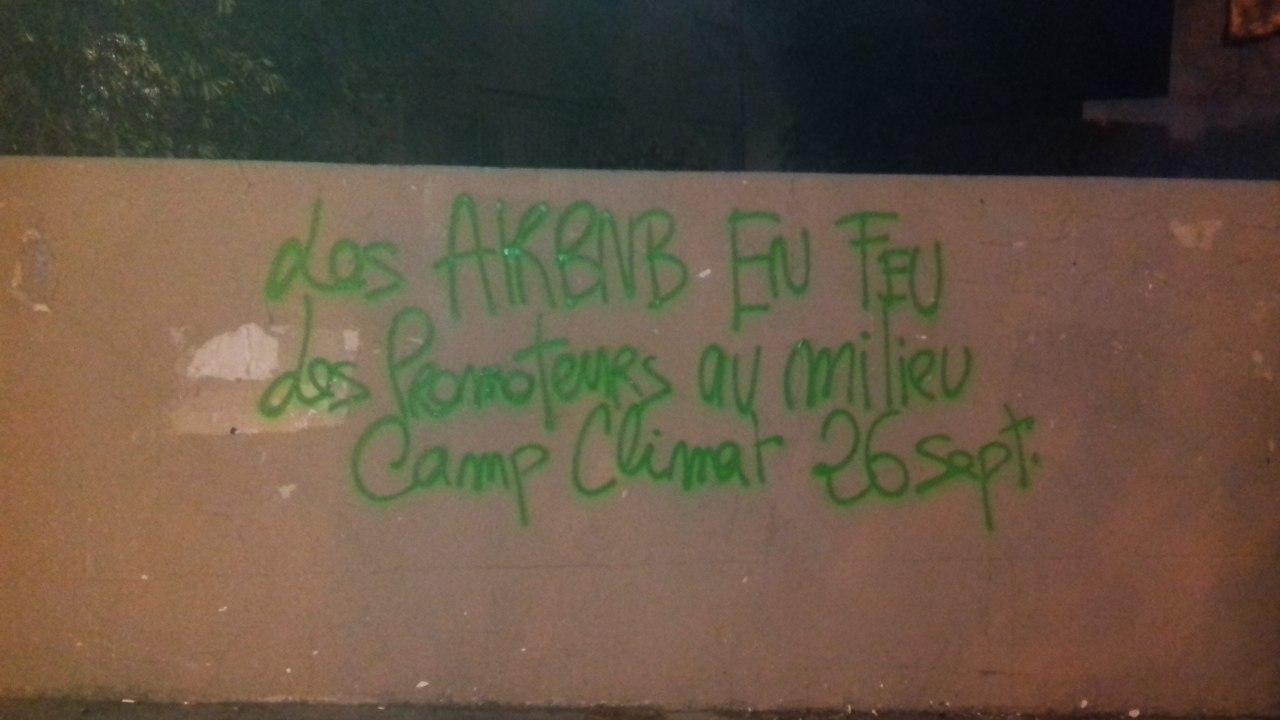 Les AIRBNB EN FEU
Les Promoteurs au milieu
Camp Climat 26 sept.